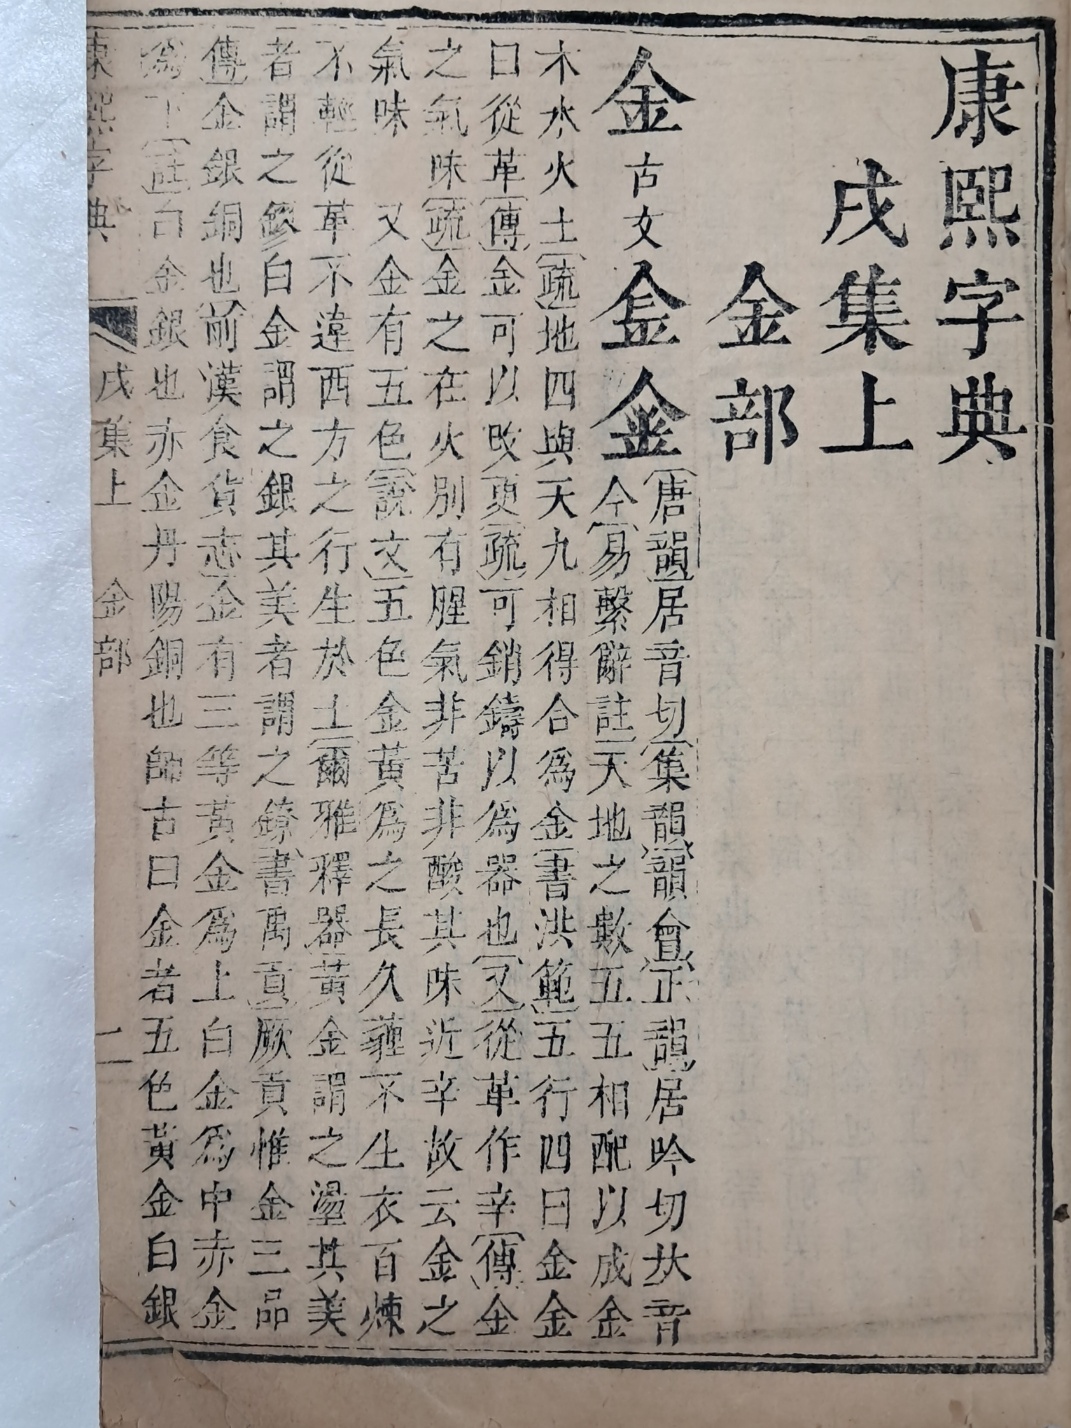 康熙字典
戌集上
金部
金古文金金
唐韻居音切集韻韻會正韻居吟切𠀤音
今易繫辭註天地之數五五相配以成金
木水火土疏地四與天九相得合爲金書洪範五行四曰金金
曰從革傳金可以改更疏可銷鑄以爲器也又從革作辛傳金
之氣味疏金之在火別有腥氣非苦非酸其味近辛故云金之
氣味 又金有五色說文五色金黃爲之長久薶不生衣百煉
不輕從革不違西方之行生於土爾雅釋器黃金謂之璗其美
者謂之鏐白金謂之銀其美者謂之鐐書禹貢厥貢惟金三品
傳金銀銅也前漢食貨志金有三等黃金爲上白金爲中赤金
爲下註白金銀也赤金丹陽銅也師古曰金者五色黃金白銀
康熙字典 戌集上 金部 二